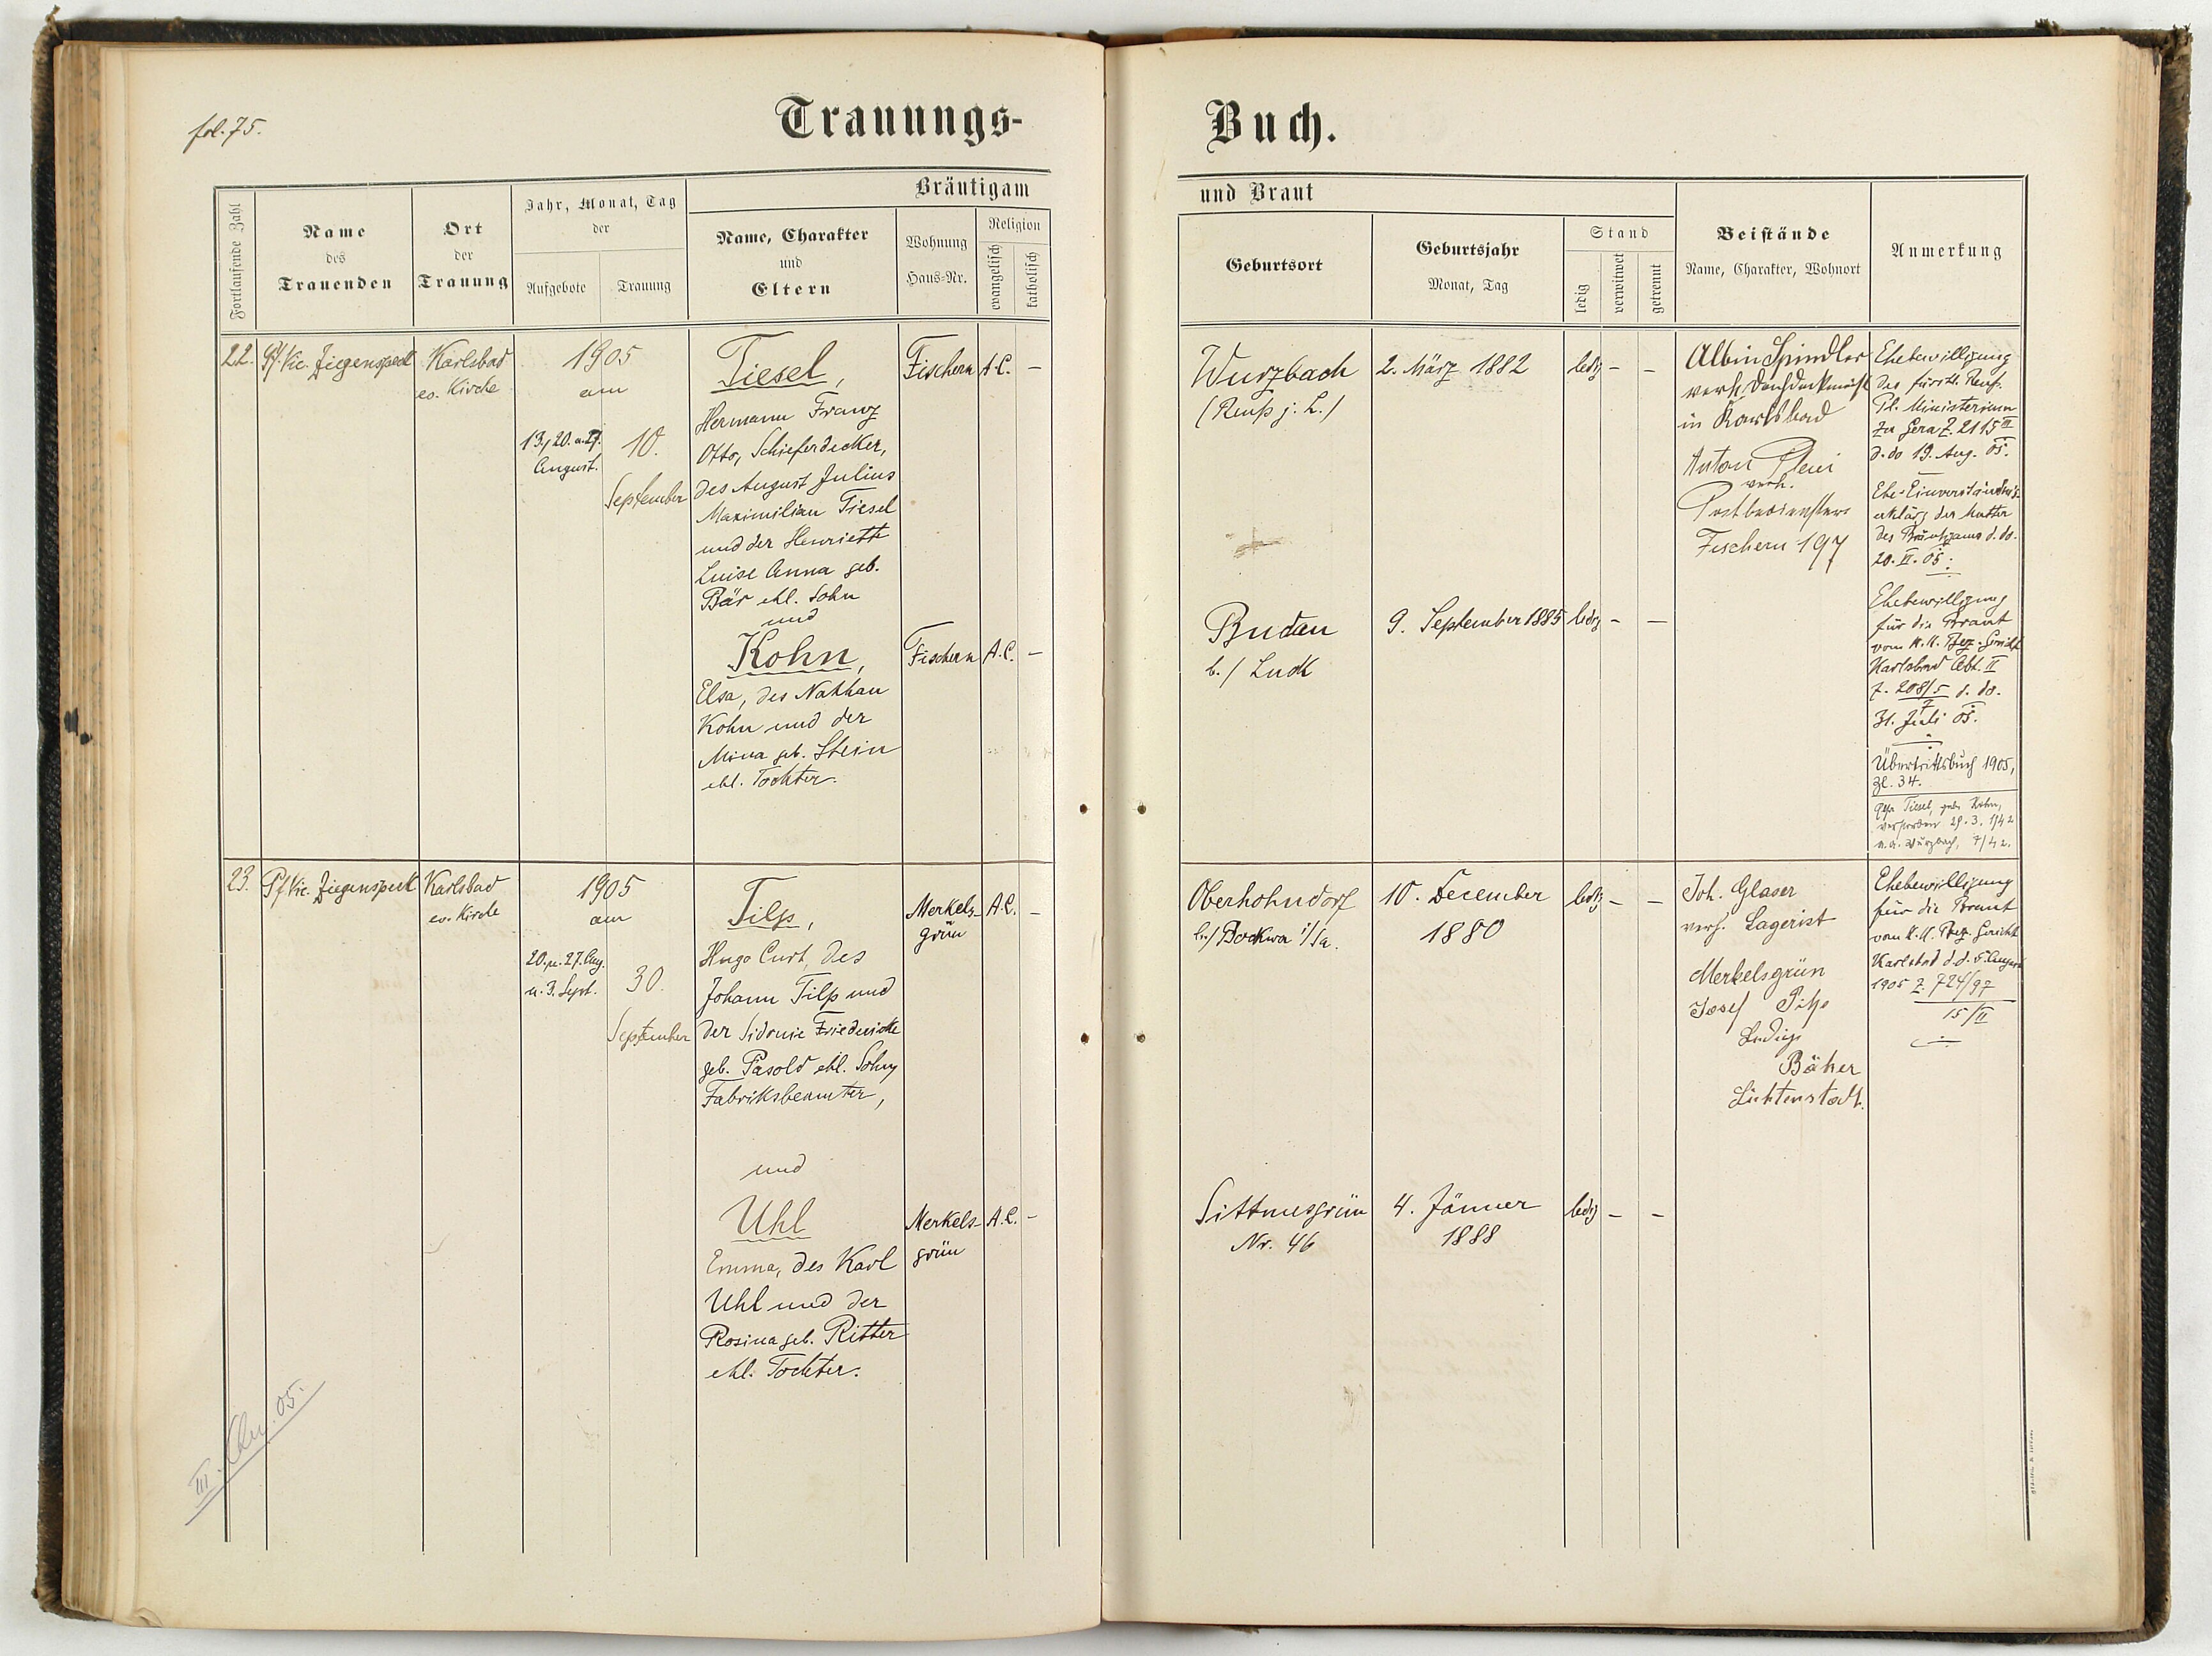 fol. 75.
Trauungs-
Buch.
Fortlaufende Zahl
Name
des
Trauenden
Ort
der
Trauung
Jahr, Monat, Tag
der
Aufgebote
Trauung
Bräutigam
Name, Charakter
und
Eltern
Wohnung
Haus-Nr.
Religion
evangelisch
katholisch
und Braut
Geburtsort
Geburtsjahr
Monat, Tag
Stand
ledig
verwitwet
getrennt
Beistände
Name, Charakter, Wohnort
Anmerkung
22.
Pf. Vic. Ziegenspeck
Karlsbad
ev. Kirche
1905
am
13., 20. u. 27.
August.
10.
September
Tiesel,
Hermann Franz
Otto, Schieferdecker,
des August Julius
Maximilian Tiesel
und der Henriette
Luise Anna geb.
Bär ehl. Sohn
und
Kohn,
Elsa, des Nathan
Kohn und der
Mina geb. Stein
ehl. Tochter.
Fischern
A. C.
–
Fischern
A. C.
–
Wurzbach
(Reuß j. L.)
2. März 1882
ledig – –
Budau
b./ Luck
9. September 1885
ledig – –
Albin Spindler
verh. Dachdeckmeist
in Karlsbad
Anton
verh.
Postbediensteter
Fischern 197
Ehebewilligung
des fürstl. Reuß.
Pl. Ministerium
zu Gera Z. 2115 III
d. do 19. Aug. 05.
Ehe-Einverständnis-
erklärg der Mutter
des Bräutigams d. do.
20. 05.
Ehebewilligung
für die Braut
vom k. k. Bez.-Gericht
Karlsbad Abt. II
Z. 208/5 d. do.
7
31. Juli 05.
Übertrittsbuch 1905,
Zl. 34.
Tiesel, geb. Kohn,
verstorben 29. 3. 1942
Wurzbach, 7/42.
23.
Pf Vic. Ziegenspeck
Karlsbad
ev. Kirche
1905
am
20. u. 27. Aug.
u. 3. Sept.
30.
September
Tilp,
Hugo Curt, des
Johann Tilp und
der Sidonie Friedericke
geb. Pasold ehl. Sohn,
Fabriksbeamter,
und
Uhl
Emma, des Karl
Uhl und der
Rosina geb. Ritter
ehl. Tochter.
Merkels-
grün
A. C.
–
Merkels-
grün
A. C.
–
Oberhohndorf
b./ Bockwa i/Sa.
10. December
1880
ledig – –
Sittmesgrün
Nr. 46
4. Jänner
1888
ledig – –
Joh. Glaser
verh. Lagerist
Merkelsgrün
Josef
Ledig
Bäker
Lichtenstadt.
Ehebewilligung
für die Braut
vom k. k. Bez. Gericht
Karlsbad d. d. 5. August
1905 Z. 724/97
15/II
III. 05.